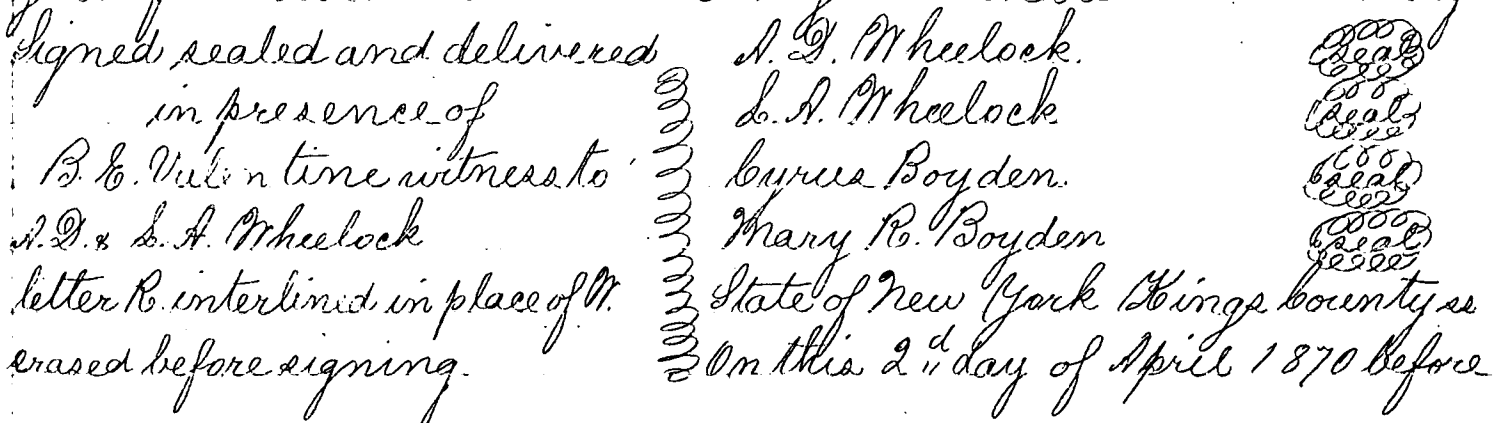 Signed sealed and delivered
in presence of
B. E. Valentine witness to
A. D. & S. A. Wheelock
letter R. interlined in place of W.
erased before signing.
A. D. Wheelock. seal
S. A. Wheelock seal
Cyrus Boyden. seal
Mary R. Boyden seal
State of New York Kings County ss
On this 2d day of April 1870 before